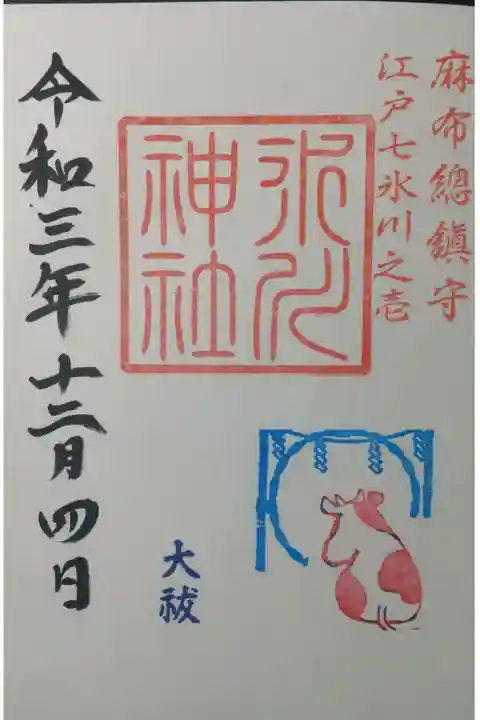 麻布總鎮守
江戸七氷川之壱
氷川
神社
大祓
令和三年十二月四日